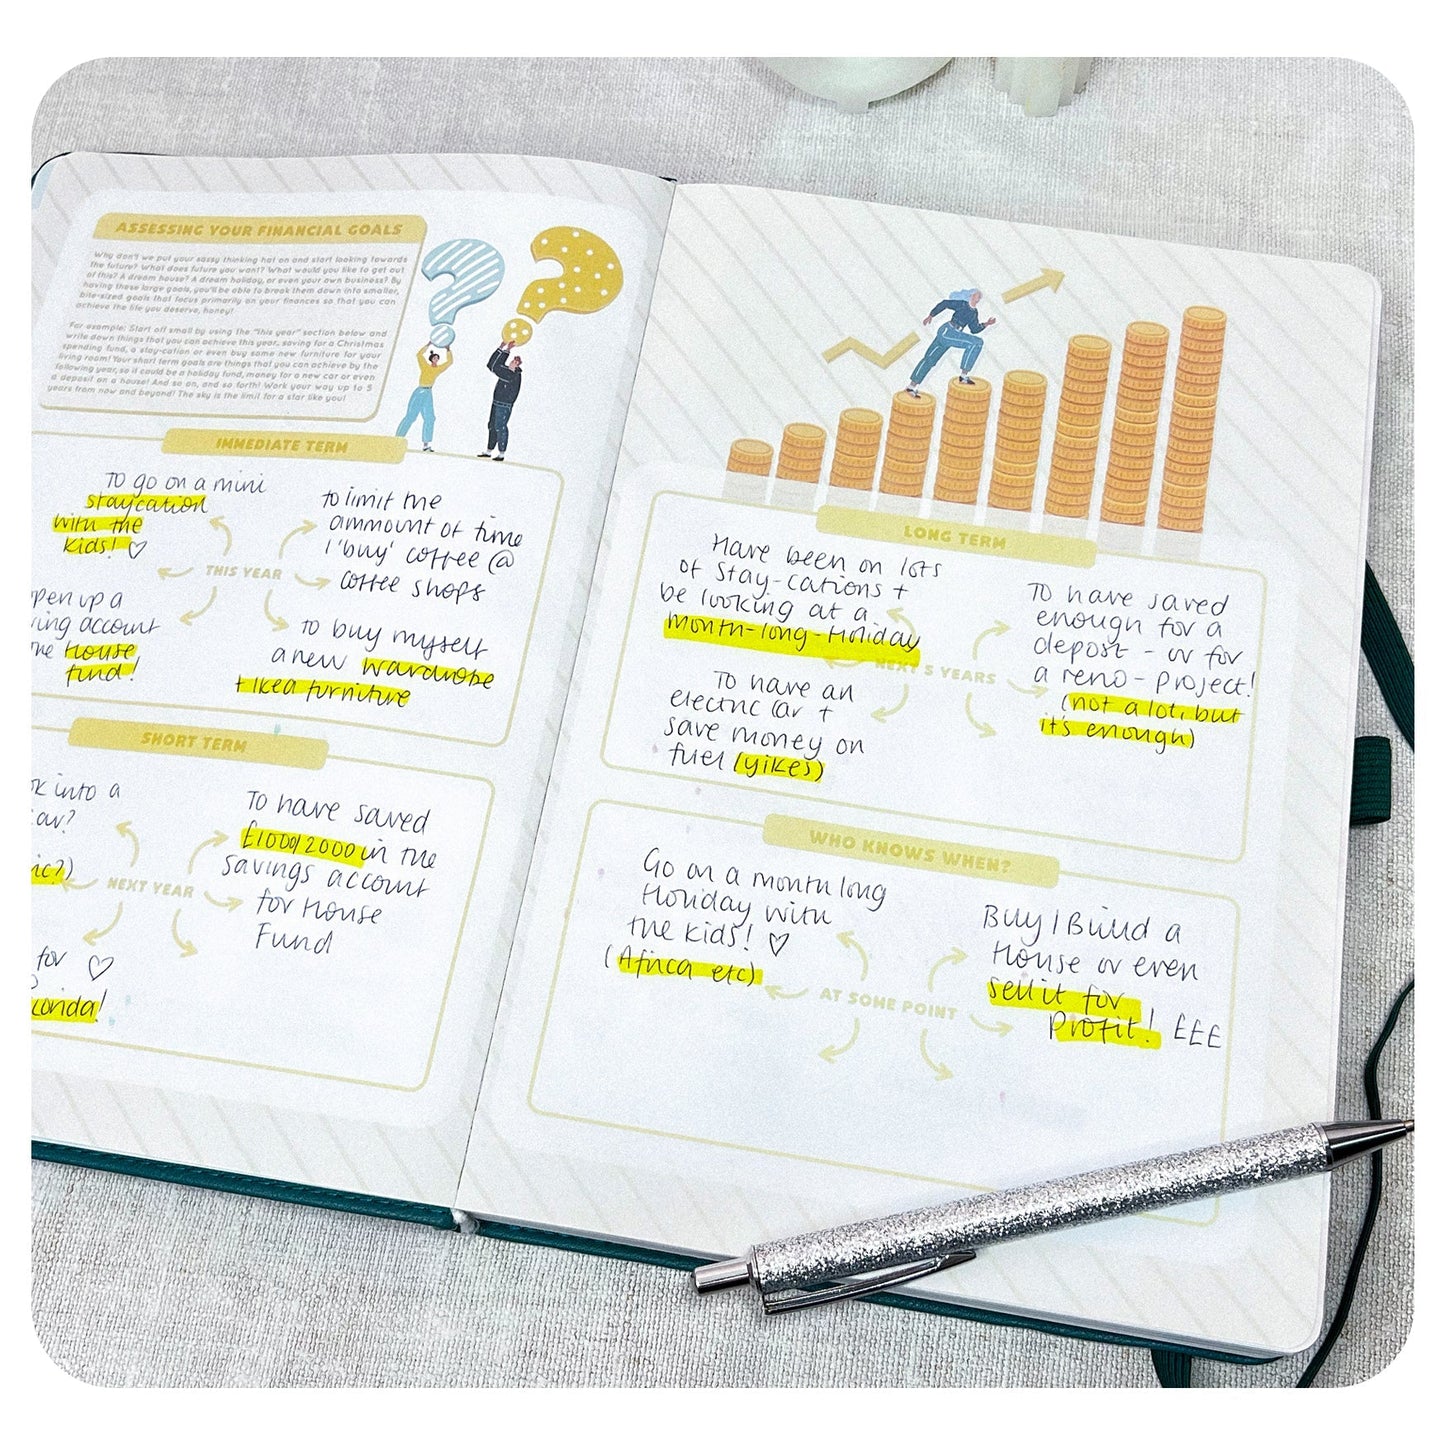 ASSESSING YOUR FINANCIAL GOALS
Why don't we put your sassy thinking hat on and start looking towards
the future? What does future you want? What would you like to get out
of this? A dream house? A dream holiday, or even your own business? By
having these large goals, you'll be able to break them down into smaller,
bite-sized goals that focus primarily on your finances so that you can
achieve the life you deserve, honey!
For example: Start off small by using the "this year" section below and
write down things that you can achieve this year, saving for a Christmas
spending fund, a stay-cation or even buy some new furniture for your
living room! Your short term goals are things that you can achieve by the
following year, so it could be a holiday fund, money for a new car or even
a deposit on a house! And so on, and so forth! Work your way up to 5
years from now and beyond! The sky is the limit for a star like you!
IMMEDIATE TERM
To go on a mini
staycation
with the
kids! ♡
to limit the
ammount of time
I 'buy' coffee @
coffee shops
THIS YEAR
pen up a
ving account
house
fund!
to buy myself
a new wardrobe
+ Ikea furniture
SHORT TERM
into a
ar?
ic?)
To have saved
£1000/2000 in the
savings account
for House
Fund
NEXT YEAR
for ♡
orida!
LONG TERM
Have been on lots
of stay-cations +
be looking at a
month-long-Holiday
To have saved
enough for a
depost - or for
a reno-project!
(not a lot, but
it's enough)
NEXT 5 YEARS
To have an
electric car +
save money on
fuel (yikes)
WHO KNOWS WHEN?
Go on a month long
Holiday with
the kids! ♡
(Africa etc)
Buy/Build a
House or even
sell it for
Profit! £££
AT SOME POINT